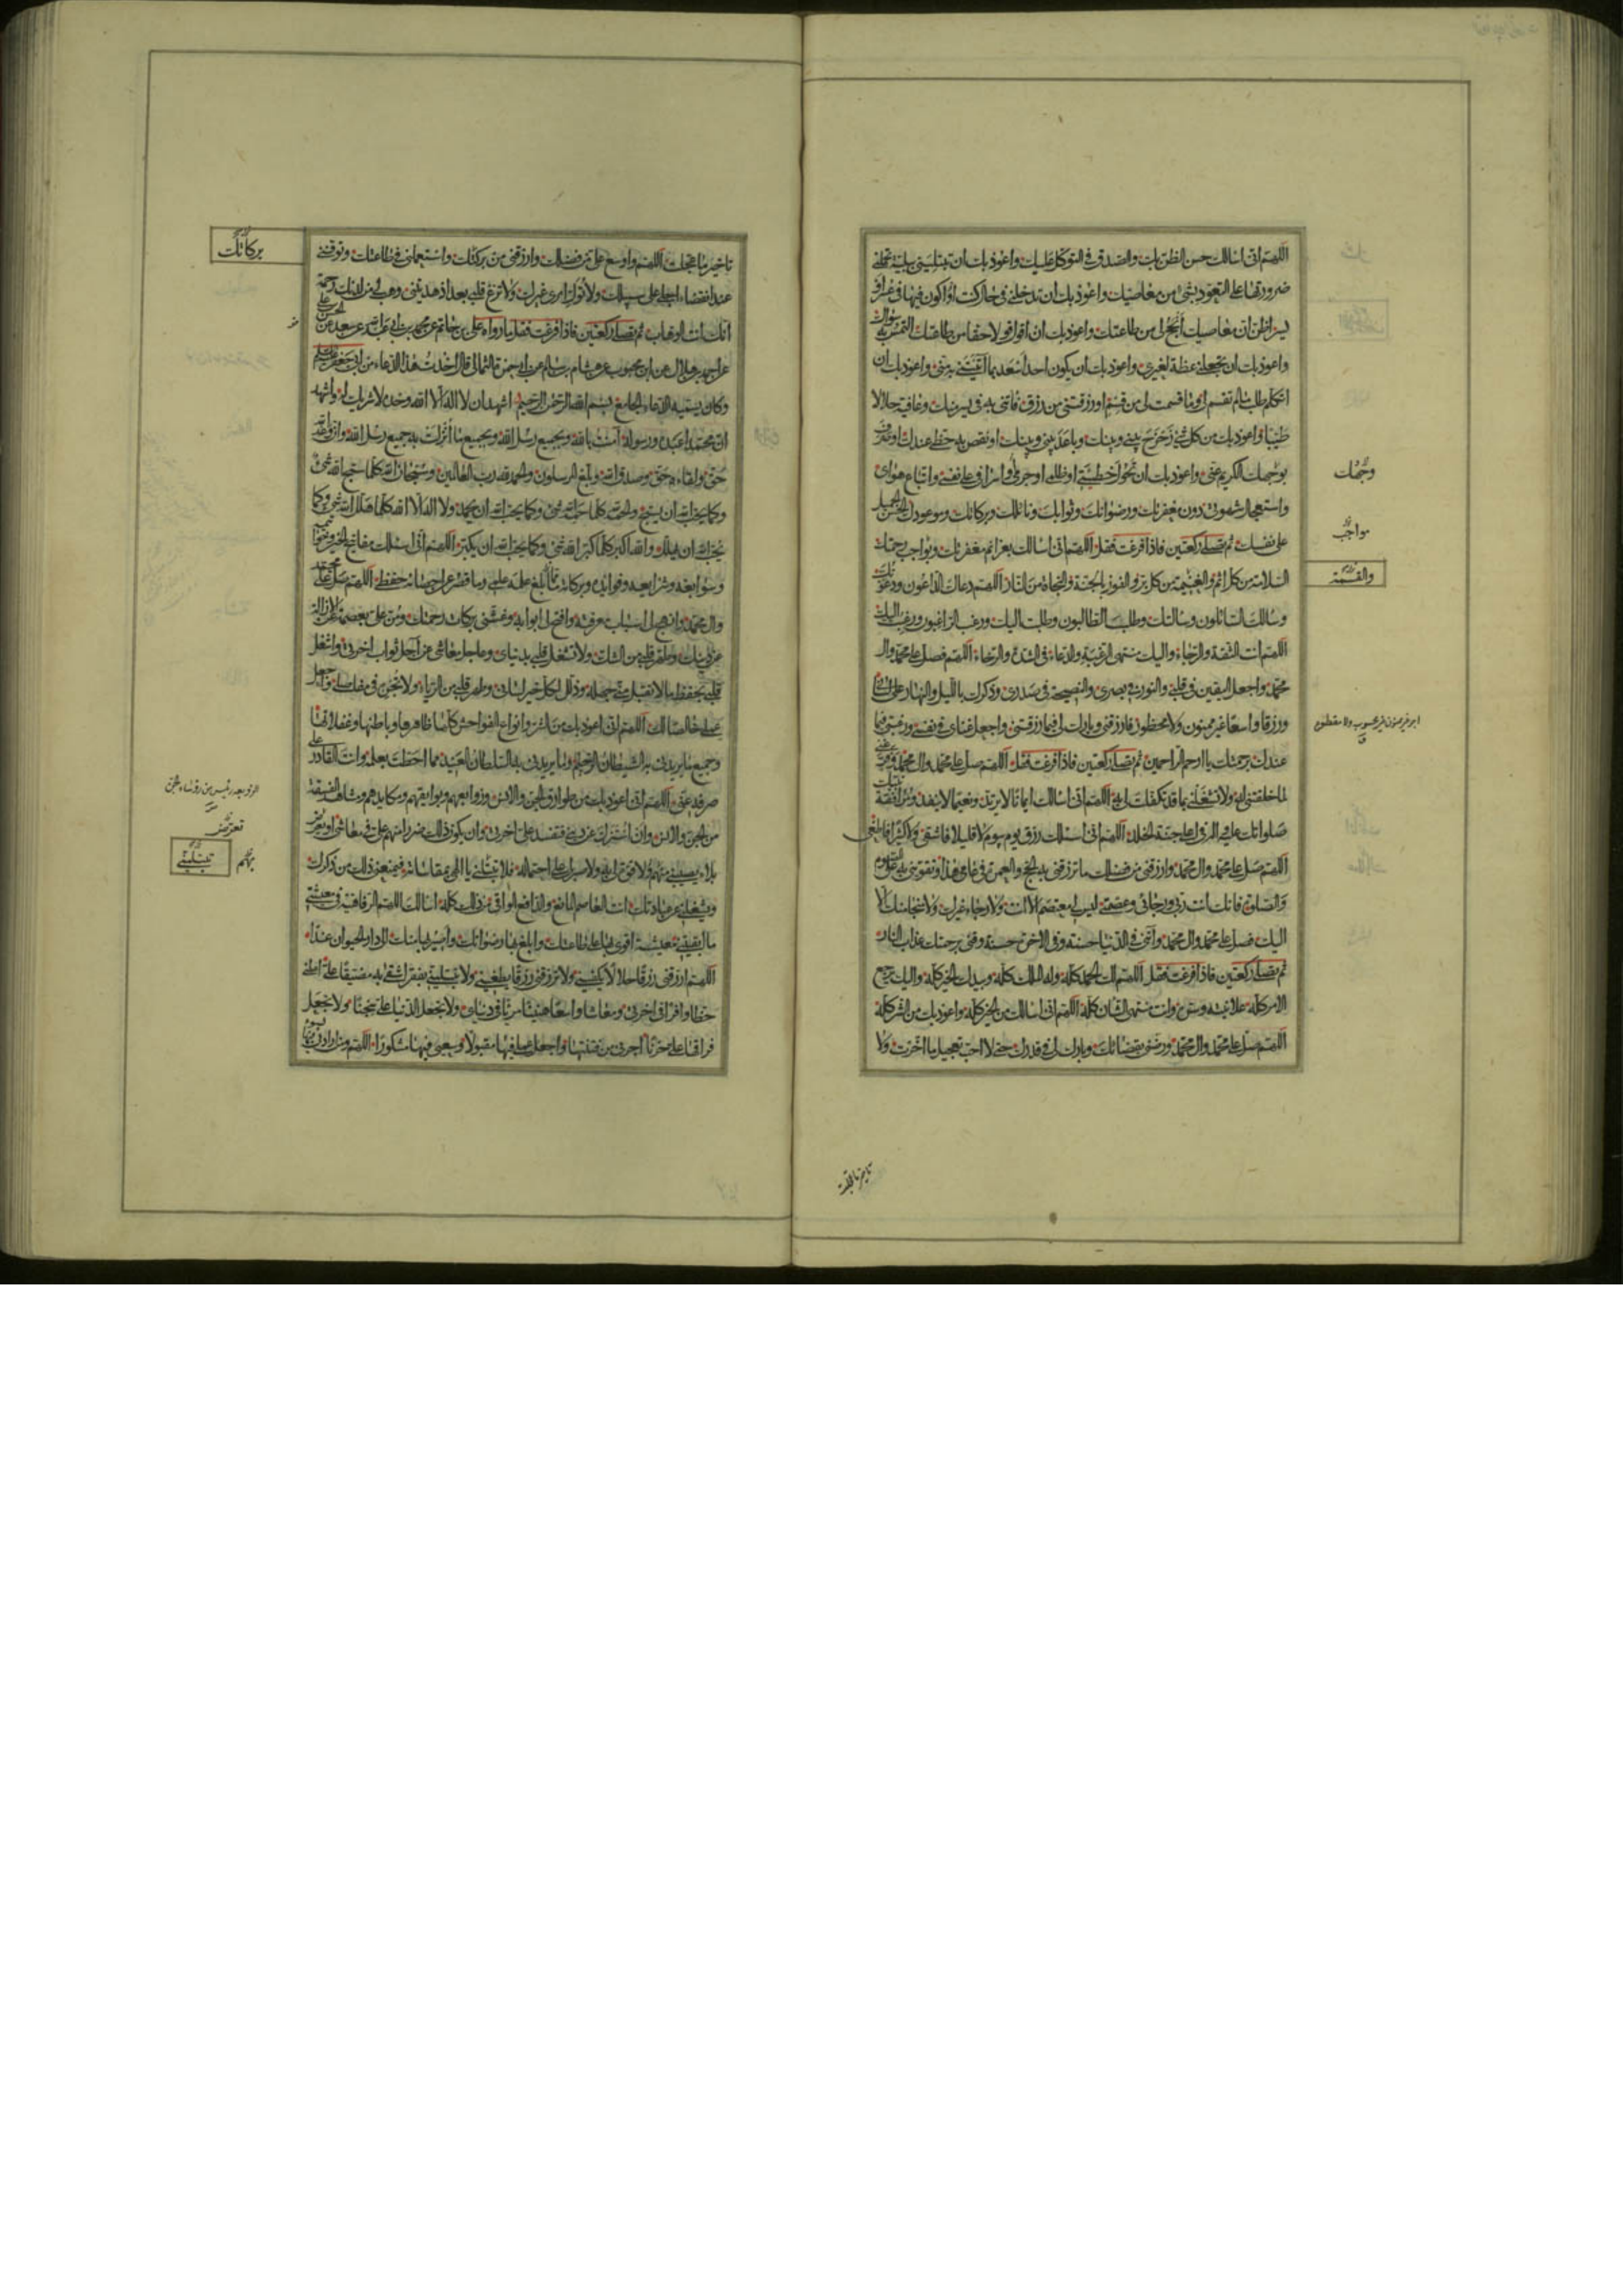 اللهم انى اسالك حسن الظن بك والصدق فى التوكل عليك واعوذ بك ان تبتلينى ببلية تحملنى
ضرورتها على التعوذ بشئ من معاصيك واعوذ بك ان تدخلنى فى حال كنت او اكون فيها فى عسر او
يسر اظن ان معاصيك انجح لى من طاعتك واعوذ بك ان اقول قولا حقا من طاعتك التمس به سواك
واعوذ بك ان تجعلنى عظة لغيرى واعوذ بك ان يكون احد اسعد بما آتيتنى به منى واعوذ بك ان
اتكلف طلب ما لم تقسم لى وما قسمت لى من قسم او رزقتنى من رزق فاتنى به فى يسر منك وعافية حلالا
طيبا واعوذ بك من كل شئ زحزح بينى وبينك وباعد بينى وبينك او نقص به حظى عندك او صرف
بوجهك الكريم عنى واعوذ بك ان تحول خطيئتى او ظلمى او جرمى واسرافى على نفسى واتباع هواى
واستعجال شهوتى دون مغفرتك ورضوانك وثوابك ونائلك وبركاتك وموعودك الحسن الجميل
على نفسك ثم تصلى ركعتين فاذا فرغت فقل اللهم انى اسالك بعزائم مغفرتك وبواجب رحمتك
السلامة من كل اثم والغنيمة من كل بر والفوز بالجنة والنجاة من النار اللهم دعاك الداعون ودعوتك
وسالك السائلون وسالتك وطلب الطالبون وطلبت اليك ورغب الراغبون ورغبت اليك
اللهم انت الثقة والرجاء واليك منتهى الرغبة والدعاء فى الشدة والرخاء اللهم فصل على محمد وال
محمد واجعل اليقين فى قلبى والنور فى بصرى والنصيحة فى صدرى وذكرك بالليل والنهار على لسانى
ورزقا واسعا غير ممنون ولا محظور فارزقنى وبارك لى فيما رزقتنى واجعل غناى فى نفسى ورغبتى فيما
عندك برحمتك يا ارحم الراحمين ثم تصلى ركعتين فاذا فرغت فقل اللهم صل على محمد وال محمد وفرغنى
لما خلقتنى له ولا تشغلنى بما قد تكفلت لى به اللهم انى اسالك ايمانا لا يرتد ونعيما لا ينفد ومرافقة نبيك
صلواتك عليه واله فى اعلى جنة الخلد اللهم انى اسالك رزق يوم بيوم لا قليلا فاشقى ولا كثيرا فاطغى
اللهم صل على محمد وال محمد وارزقنى من فضلك ما ترزقنى به الحج والعمرة فى عامى هذا وتقوينى به على الصوم
والصلوة فانك انت ربى ورجائى وعصمتى ليس لى معتصم الا انت ولا رجاء غيرك ولا منجا منك الا
اليك فصل على محمد وال محمد وآتنى فى الدنيا حسنة وفى الاخرة حسنة وقنى برحمتك عذاب النار
ثم تصلى ركعتين فاذا فرغت فقل اللهم لك الحمد كله ولك الملك كله وبيدك الخير كله واليك يرجع
الامر كله علانيته وسره وانت منتهى الشان كله اللهم انى اسالك من الخير كله واعوذ بك من الشر كله
اللهم صل على محمد وال محمد ورضنى بقضائك وبارك لى فى قدرك حتى لا احب تعجيل ما اخرت ولا
وجهك
مواجب
والغنيمة
تاخير ما عجلت
تاخير ما عجلت اللهم واوسع على من فضلك وارزقنى من بركتك واستعملنى فى طاعتك وتوفنى
عند انقضاء اجلى على سبيلك ولا تول امرى غيرك ولا تزغ قلبى بعد اذ هديتنى وهب لى من لدنك رحمة
انك انت الوهاب ثم تصلى ركعتين فاذا فرغت فقل ما رواه على بن حاتم عن محمد بن ابى عبد الله عن سعد عن
عن احمد بن هلال عن ابن محبوب عن هشام بن سالم عن ابى حمزة الثمالى قال اخذت هذا الدعاء من ابى جعفر
وكان يسميه الدعاء الجامع بسم الله الرحمن الرحيم اشهد ان لا اله الا الله وحده لا شريك له واشهد
ان محمدا عبده ورسوله آمنت بالله وبجميع رسل الله وبجميع ما انزلت به جميع رسل الله وان وعد الله
حق ولقاءه حق وصدق الله وبلغ المرسلون والحمد لله رب العالمين وسبحان الله كلما سبح الله شئ
وكما يحب الله ان يسبح والحمد لله كلما حمد الله شئ وكما يحب الله ان يحمد ولا اله الا الله كلما هلل الله شئ وكما
يحب الله ان يهلل والله اكبر كلما كبر الله شئ وكما يحب الله ان يكبر اللهم انى اسالك مفاتيح الخير وخواتيمه
وسوابغه وشرايعه وفوائده وبركاته ما بلغ علمه علمى وما قصر عن احصائه حفظى اللهم صل على محمد
وال محمد وانهج لى اسباب معرفته وافتح لى ابوابه وغشنى بركات رحمتك ومن على بعصمة عن الازالة
عن دينك وطهر قلبى من الشك ولا تشغل قلبى بدنياى وعاجل معاشى عن آجل ثواب اخرتى واشغل
قلبى بحفظ ما لا تقبل منى جهله وذلل لكل خير لسانى وطهر قلبى من الرياء ولا تجره فى مفاصلى واجعل
عملى خالصا لك اللهم انى اعوذ بك من الشر وانواع الفواحش كلها ظاهرها وباطنها وغفلاتها
وجميع ما يريدنى به الشيطان الرجيم وما يريدنى به السلطان العنيد مما احطت بعلمه وانت القادر على
صرفه عنى اللهم انى اعوذ بك من طوارق الجن والانس وزوابعهم وبوائقهم ومكايدهم ومشاهد الفسقة
من الجن والانس وان استزل عن دينى فتفسد على اخرتى وان يكون ذلك ضررا منهم على فى معاشى او بعرض
بلاء يصيبنى منهم لا قوة لى به ولا صبر لى على احتماله فلا تبتلنى يا الهى بمقاساته فيمنعنى ذلك من ذكرك
ويشغلنى عن عبادتك انت العاصم المانع والدافع الواقى من ذلك كله اسالك اللهم الرفاهية فى معيشتى
ما ابقيتنى معيشة اقوى بها على طاعتك وابلغ بها رضوانك واصير بها منك الى دار الحيوان غدا
اللهم ارزقنى رزقا حلالا يكفينى ولا ترزقنى رزقا يطغينى ولا تبتلينى بفقر اشقى به مضيقا على اعطنى
حظا وافرا فى اخرتى ومعاشا واسعا هنيئا مريئا فى دنياى ولا تجعل الدنيا على سجنا ولا تجعل
فراقها على حزنا اجرنى من فتنتها واجعل عملى فيها مقبولا وسعيى فيها مشكورا اللهم ومن ارادنى بسوء
بركاتك
الزوبعة رئيس من رؤساء الجن
تعرض
بهم
تبتلينى